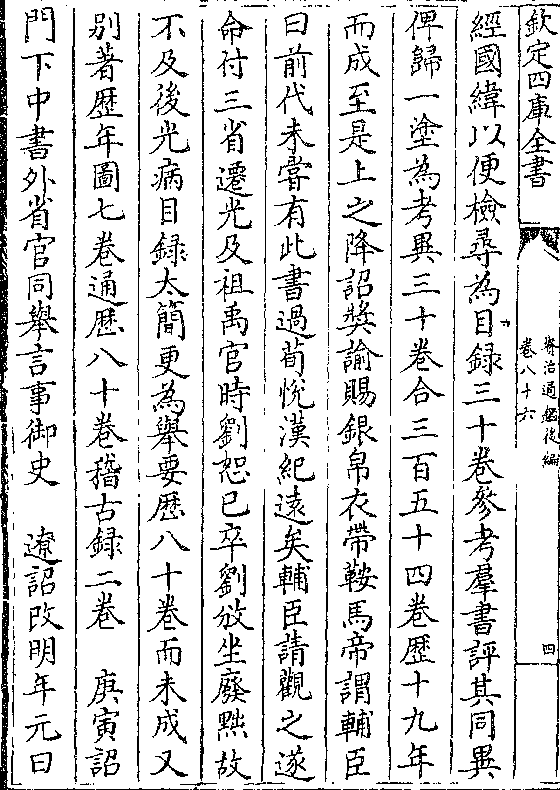 欽定四庫全書
資治通鑑後編
卷八十六
四
經國緯以便檢尋為目錄三十卷參考羣書評其同異
俾歸一塗為考異三十卷合三百五十四卷歷十九年
而成至是上之降詔獎諭賜銀帛衣帶鞍馬帝謂輔臣
曰前代未嘗有此書過荀悅漢紀遠矣輔臣請觀之遂
命付三省遷光及祖禹官時劉恕已卒劉攽坐廢黜故
不及後光病目錄太簡更為舉要歷八十卷而未成又
别著歷年圖七卷通歷八十卷稽古錄二卷　庚寅詔
門下中書外省官同舉言事御史　遼詔改明年元曰